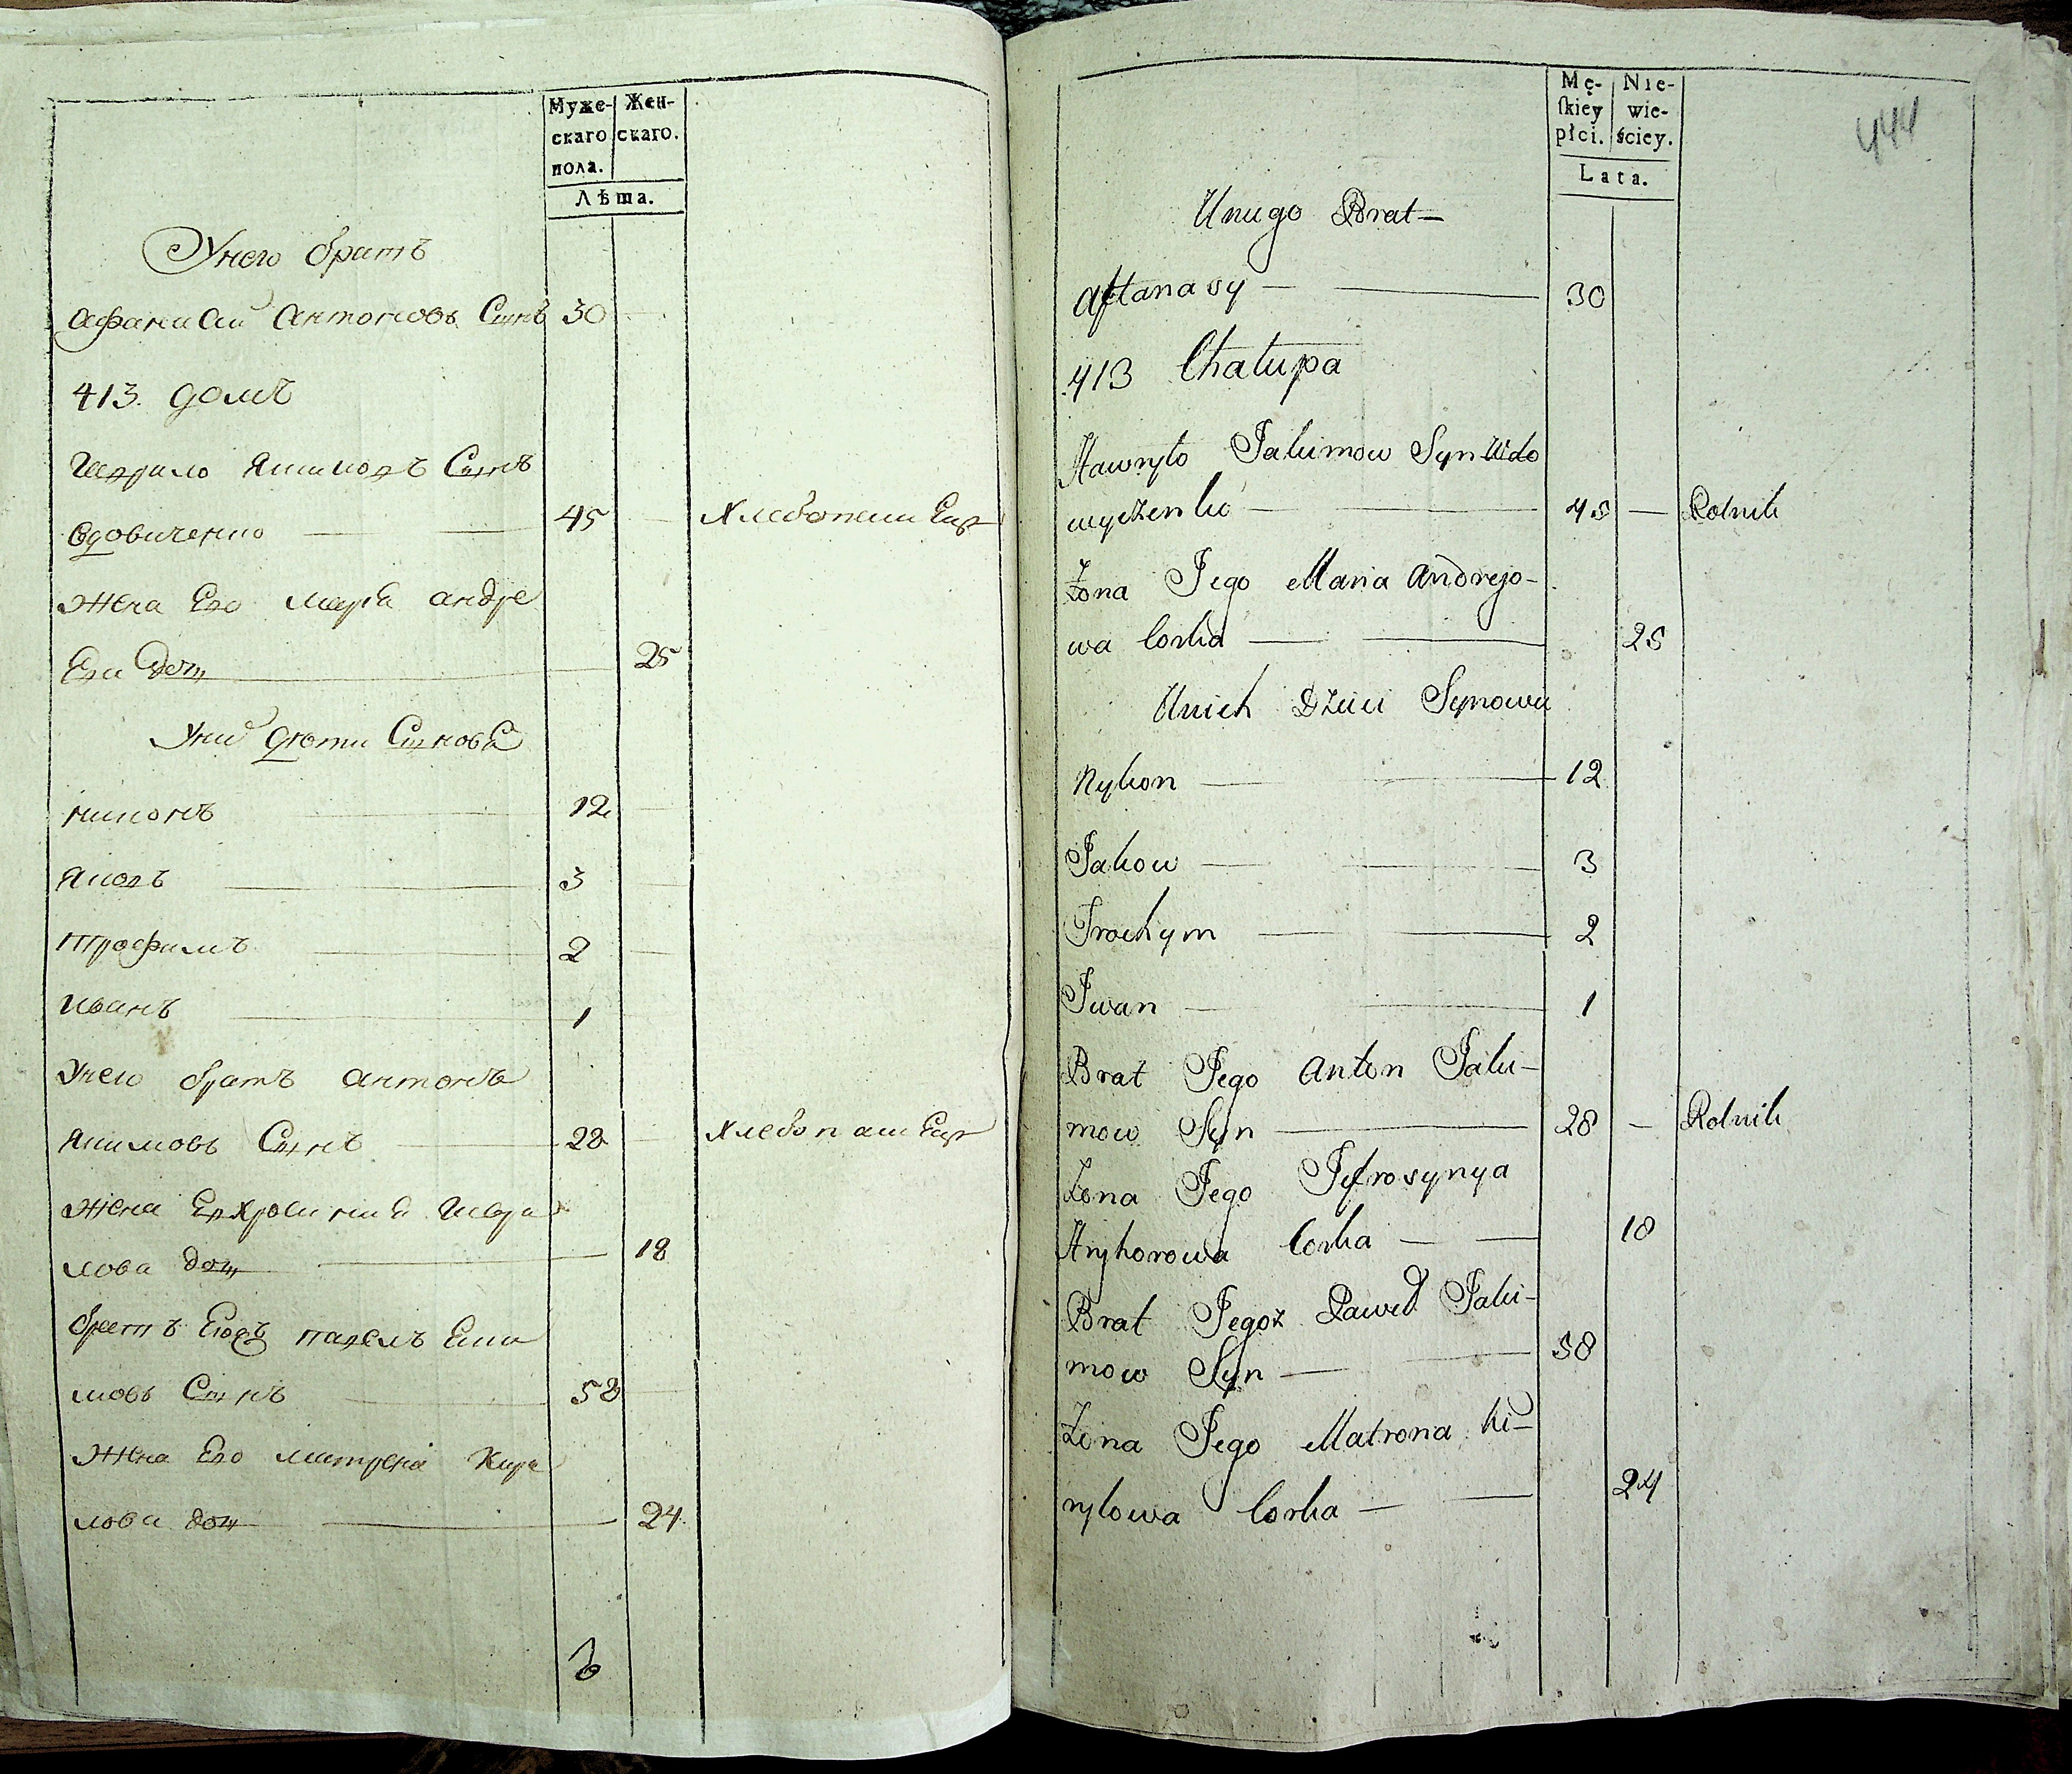 Муже-
скаго
пола.
Жен-
скаго.
Лѣта.
Унего братъ
Афанасій Антоновъ Сынъ 30
413. домъ
Гаврило Якимовъ Сынъ
Вдовиченко 45 Хлебопашецъ
Жена Его Марья Андре
Ева дочь 25
Уних дѣти Сыновья
Никонъ 12
Яковъ 3
Трофимъ 2
Иванъ 1
Унего братъ Антонъ
Якимовъ Сынъ 28 Хлебопашецъ
Жена
лова дочь 18
братъ Егожъ Павелъ Еки
мовъ Сынъ 58
Жена Его Матрена Кири
лова дочь 24
6
Mę-
skiey
płci.
Nie-
wie-
ściey.
Lata.
444
Uniego Brat
Aftanasy 30
413 Chałupa
Hawryło Jakimow Syn Wdo
wyczenko 45 Rolnik
Żona Jego Maria Andrejo-
wa Corka 25
Unich Dzieci Synowie
Nykon 12
Jakow 3
Trochym 2
Iwan 1
Brat Jego Anton Jaki-
mow Syn 28 Rolnik
Żona Jego Jefrosynya
Hryhorowa Corka 18
Brat Jegoż Paweł Jaki-
mow Syn 58
Żona Jego Matrona Ki-
ryłowa Corka 24